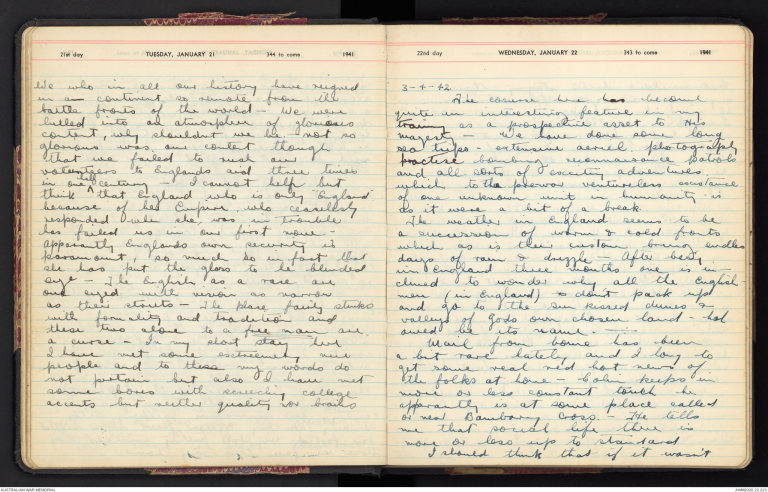 21st day TUESDAY, JANUARY 21 344 to come 1941
We who in all our history have reigned
in a continent so remote from the
battle fronts of the world - We were
lulled into an atmosphere of glorious
content, why shouldn't we be not so
glorious was our contet though
that we failed to rush our
volunteers to Englands aid three times
in one half century I cannot help but
think that England who is only "England"
because of her Empire, who ceaselessly
responded when she was in trouble
has failed us in our first none -
apparently Englands own security is
paramount, so much so in fact that
she has put the glass to her blinded
eye - The English as a race are
one eyed with vision as narrow
as their streets - The place fairly stinks
with formality and tradition and
these two alone to a free man are
a curse - In my short stay here
I have met some extreemely nice
people and to these my words do
not pertain but also I have met
some bores with screeching college
accents but neither quality nor brains
22nd day WEDNESDAY, JANUARY 22 343 to come 1941
3-4-42
The course here has become
quite an interesting feature in my
training as a prospective asset to His
majesty - We have done some long
sea trips - extensive aerial photography
practise bombing reconnaissance patrols
and all sorts of exciting adventures
which to the prewar ventureless existance
of one unknown unit in humanity is
as it were a bit of a break.
The weather in England seems to be
a succession of warm & cold fronts
which as is their custom bring endless
days of rain & drizzle - After being
in England three months one is in
clined to wonder why all the English-
men (in England) don't pack up
and go to the sun kissed dunes &
valleys of Gods own chosen land - hol
owed be its name -
Mail from home has been
a bit rare lately and I long to
get some real red hot news of
the folks at home - Colin keeps in
more or less constant touch - he
apparently is at some place called
or near Bambarry Cross. - He tells
me that social life there is
more or less up to standard
I should think that if it wasn't
AUSTRALIAN WAR MEMORIAL